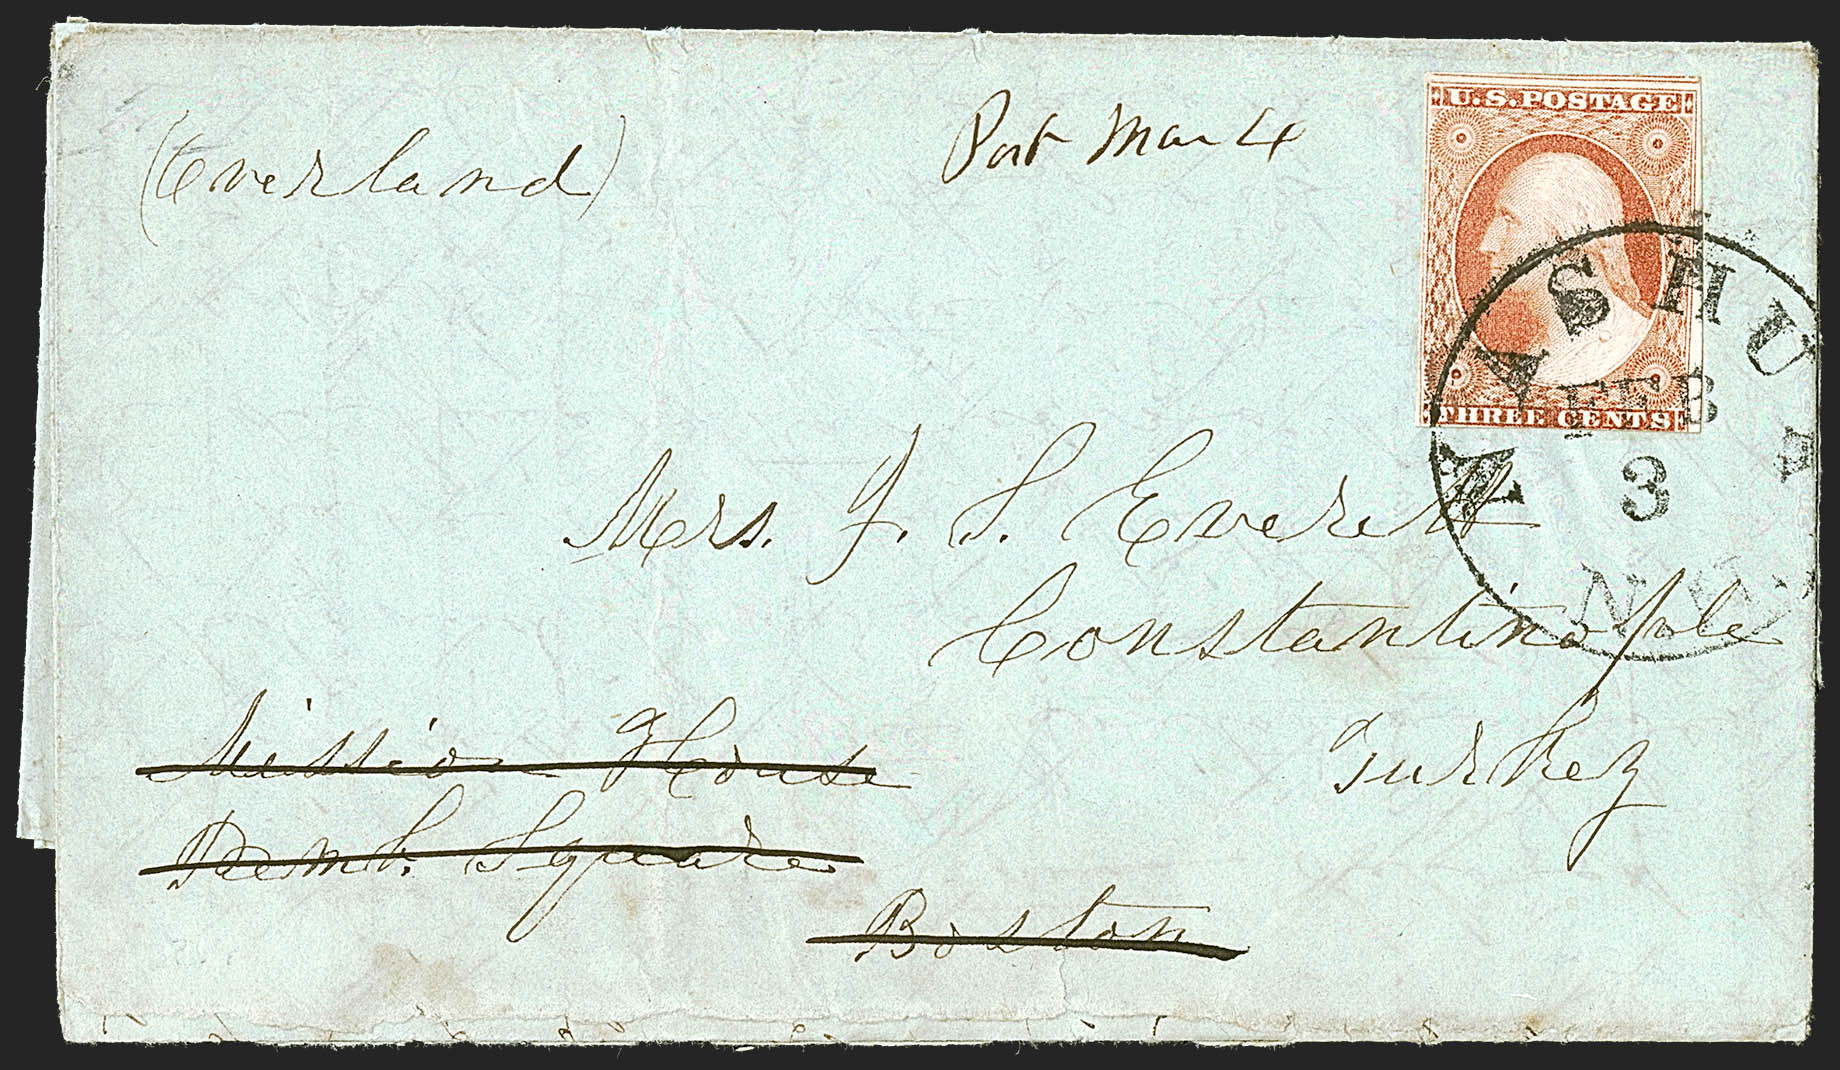 (Overland)
Port Mar 4
U.S. POSTAGE
THREE CENTS
NASHUA
FEB
3
N.H.
Mrs. J. S. Everett
Constantinople
Turkey
Mission House
Pemb. Square
Boston